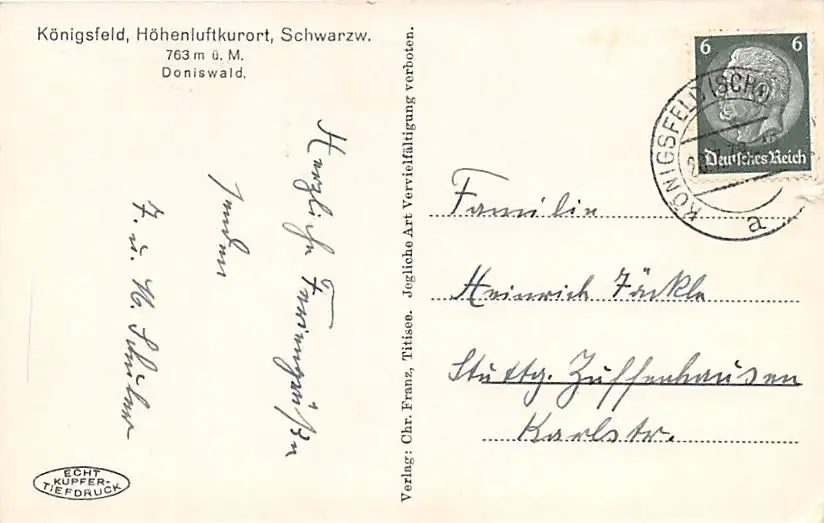 Königsfeld, Höhenluftkurort, Schwarzw.
763 m ü. M.
Doniswald.
Herzliche Feriengrüße
senden
F. u. H. Schuber
ECHT
KUPFER-
TIEFDRUCK
Verlag: Chr. Franz, Titisee. Jegliche Art Vervielfältigung verboten.
6 6
Deutsches Reich
KÖNIGSFELD (SCHW)
a
Familie
Heinrich Jäckle
Stuttg. Zuffenhausen
Karlstr.